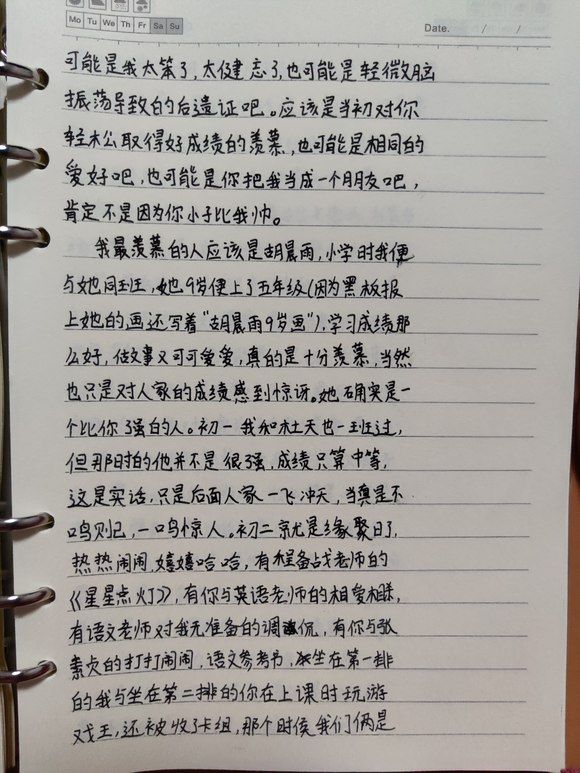 Mo Tu We Th Fr Sa Su
Date. / /
可能是我太笨了,太健忘了,也可能是轻微脑
振荡导致的后遗证吧。应该是当初对你
轻松公取得好成绩的羡慕,也可能是相同的
爱好吧,也可能是你把我当成一个朋友吧,
肯定不是因为你小子比我帅。
我最羡慕的人应该是胡晨雨,小学时我便
与她同班,她9岁便上了五年级(因为黑板报
上她的画还写着“胡晨雨9岁画”),学习成绩那
么好,做事又可可爱爱,真的是十分羡慕,当然
也只是对人家的成绩感到惊讶。她确实是一
个比你强的人。初一我和杜天也一班过,
但那时的他并不是很强,成绩只算中等,
这是实话,只是后面人家一飞冲天,当真是不
鸣则已,一鸣惊人。初二就是缘聚日了,
热热闹闹嬉嬉哈哈,有程备战老师的
《星星点灯》,有你与英语老师的相爱相杀,
有语文老师对我无准备的调侃,有你与张
素贞的打打闹闹,语文参考书,坐在第一排
的我与坐在第二排的你在上课时玩游
戏王,还被收了卡组,那个时侯我们俩是